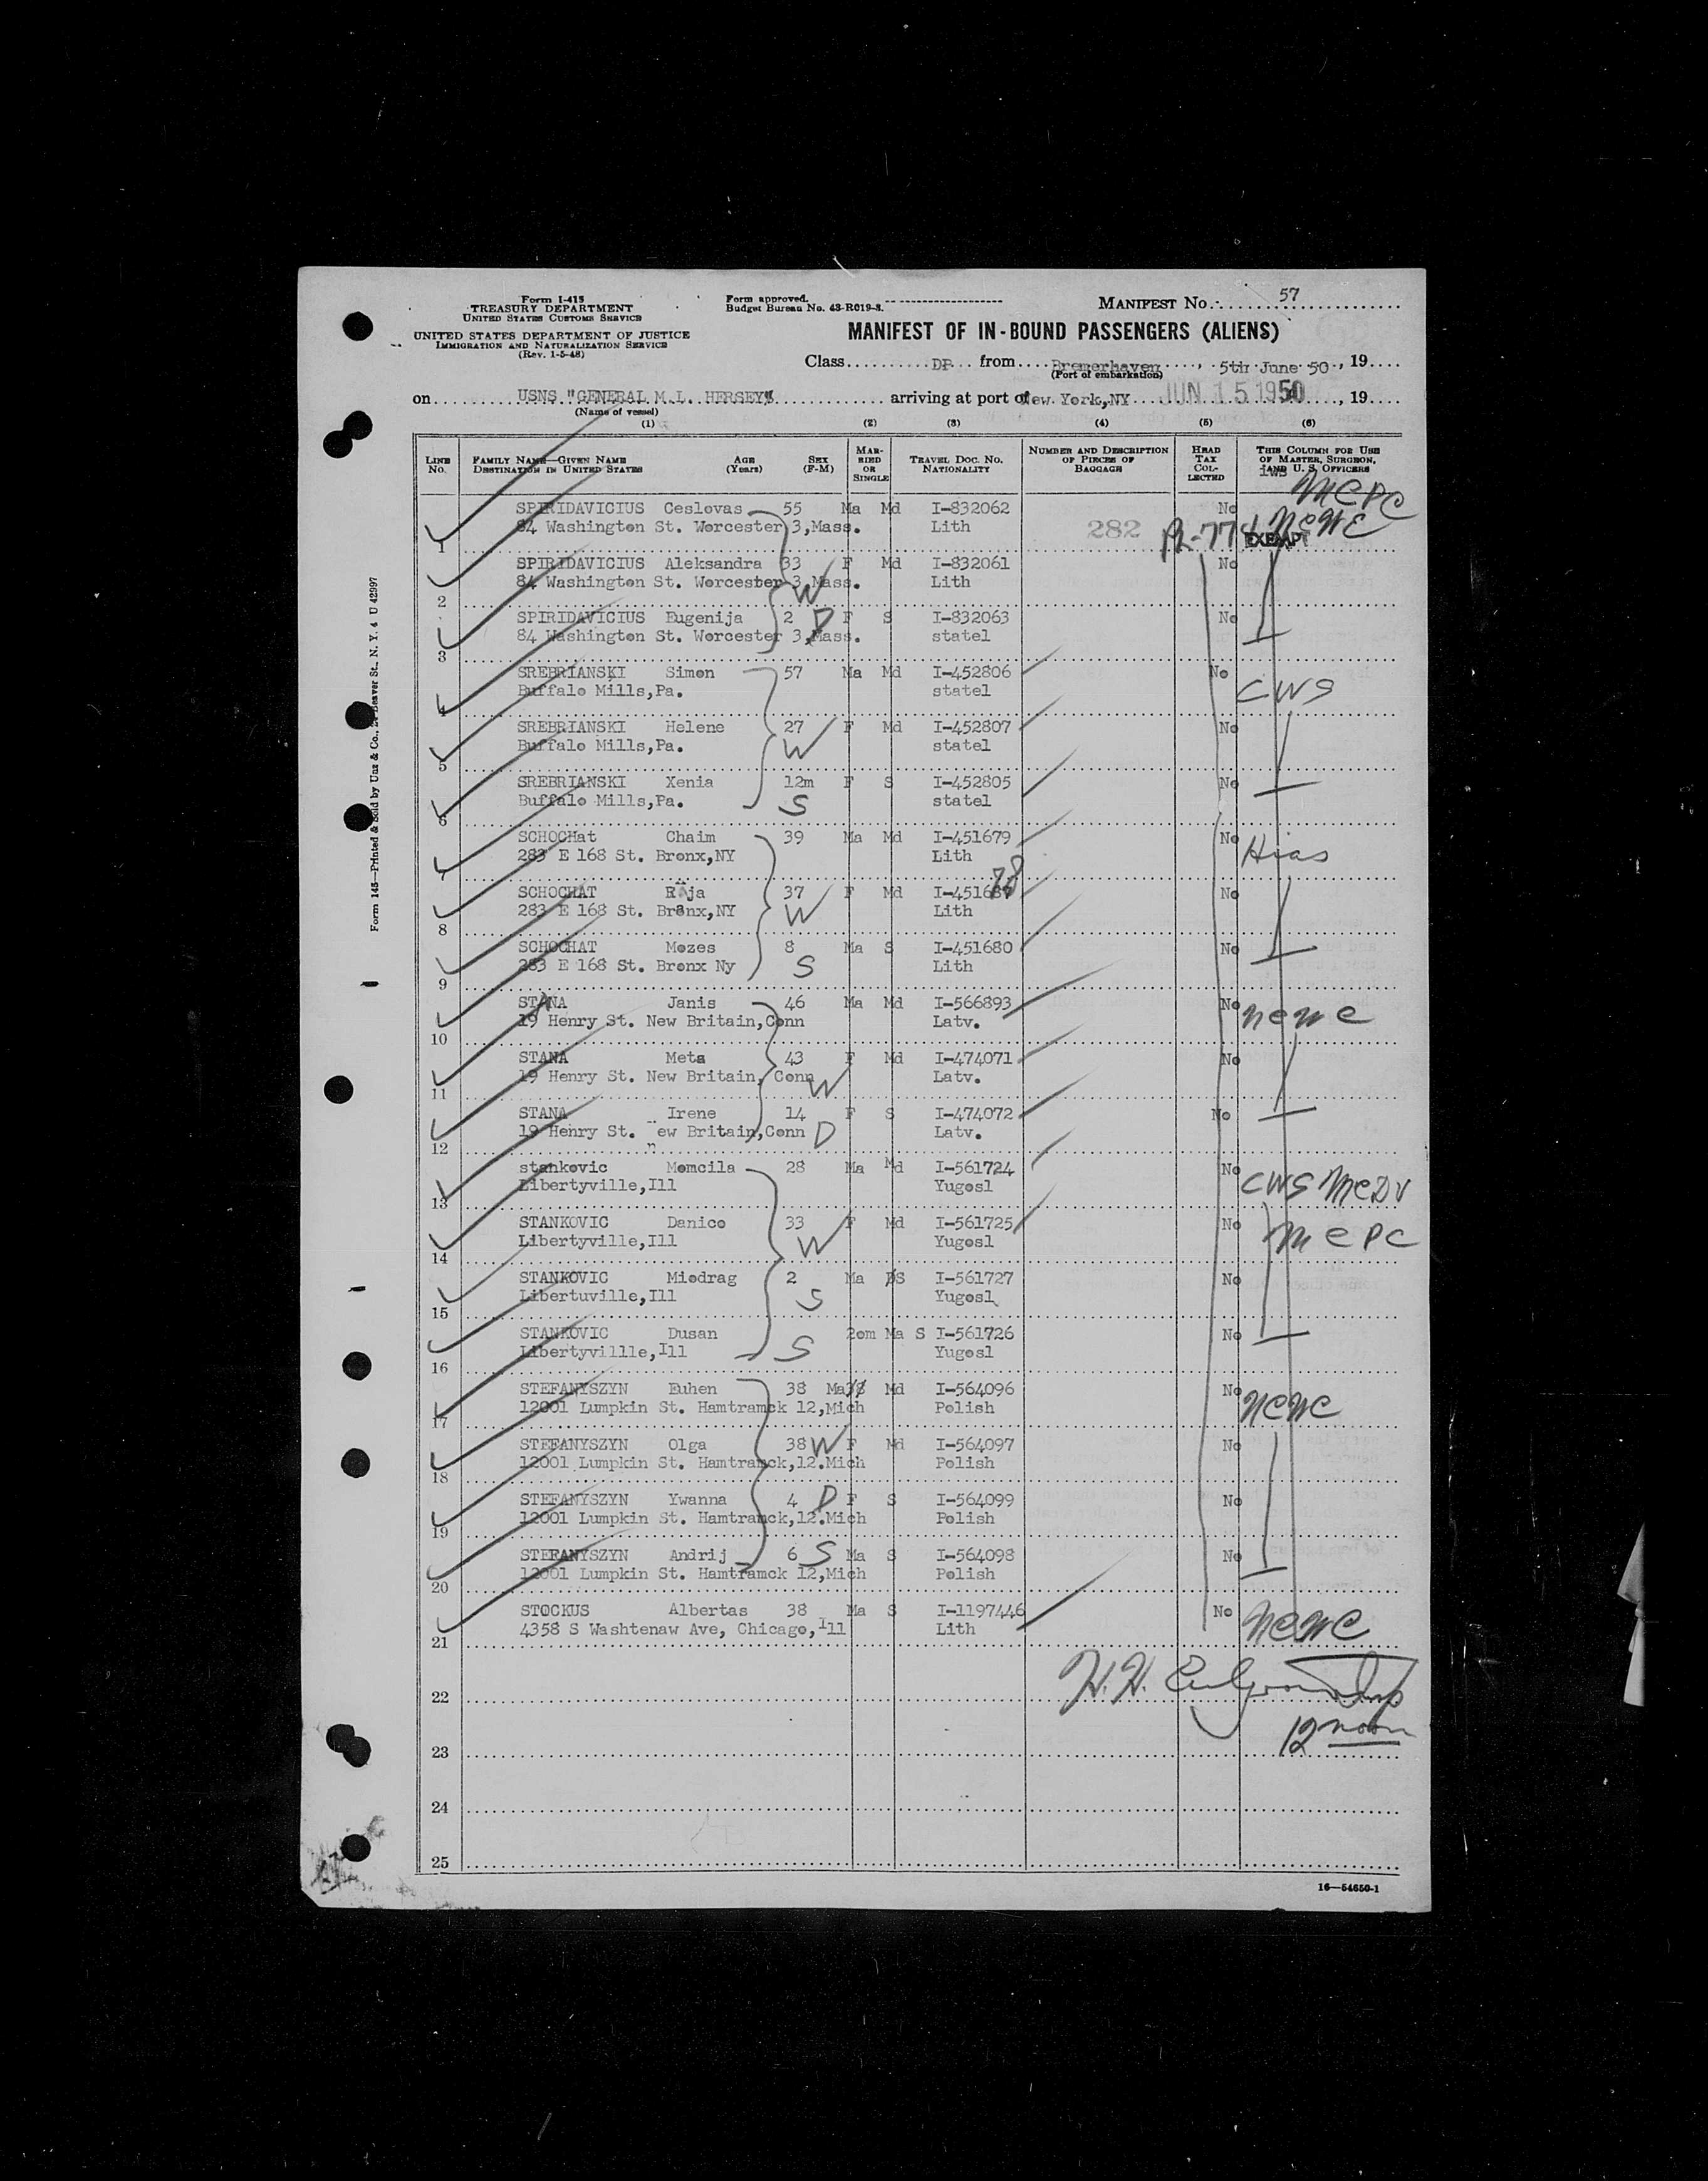 Form I-415
TREASURY DEPARTMENT
UNITED STATES CUSTOMS SERVICE
UNITED STATES DEPARTMENT OF JUSTICE
IMMIGRATION AND NATURALIZATION SERVICE
(Rev. 1-5-48)
Form approved.
Budget Bureau No. 43-R019-3.
MANIFEST No. 57
MANIFEST OF IN-BOUND PASSENGERS (ALIENS)
Class DP from Bremerhaven, 5th June 50, 19
(Port of embarkation)
on USNS "GENERAL M.L. HERSEY" arriving at port of New York, NY JUN 15 1950, 19
(Name of vessel)
(1) (2) (3) (4) (5) (6)
LINE No. FAMILY NAME—GIVEN NAME DESTINATION IN UNITED STATES AGE (Years) SEX (F-M) MARRIED OR SINGLE TRAVEL DOC. NO. NATIONALITY NUMBER AND DESCRIPTION OF PIECES OF BAGGAGE HEAD TAX COLLECTED THIS COLUMN FOR USE OF MASTER, SURGEON, AND U. S. OFFICERS
MCPC
SPIRIDAVICIUS Ceslovas 55 Ma Md I-832062 No NCWC
1 84 Washington St. Worcester 3,Mass. Lith 282 EXEMPT
SPIRIDAVICIUS Aleksandra 33 F Md I-832061 No
2 84 Washington St. Worcester 3 Mass. W Lith
SPIRIDAVICIUS Eugenija 2 D F S I-832063 No
3 84 Washington St. Worcester 3,Mass. statel
SREBRIANSKI Simon 57 Ma Md I-452806 No CWS
4 Buffalo Mills,Pa. statel
SREBRIANSKI Helene 27 F Md I-452807 No
5 Buffalo Mills,Pa. W statel
SREBRIANSKI Xenia 12m F S I-452805 No
6 Buffalo Mills,Pa. S statel
SCHOCHat Chaim 39 Ma Md I-451679 No Hias
7 283 E 168 St. Bronx,NY Lith
SCHOCHAT Raja 37 F Md I-451687 78 No
8 283 E 168 St. Bronx,NY W Lith
SCHOCHAT Mozes 8 Ma S I-451680 No
9 283 E 168 St. Bronx Ny S Lith
STANA Janis 46 Ma Md I-566893 No NCWC
10 19 Henry St. New Britain,Conn Latv.
STANA Meta 43 F Md I-474071 No
11 19 Henry St. New Britain, Conn W Latv.
STANA Irene 14 F S I-474072 No
12 19 Henry St. new Britain,Conn D Latv.
stankovic Momcila 28 Ma Md I-561724 No CWS MCDV
13 Libertyville,Ill Yugosl
STANKOVIC Danico 33 F Md I-561725 No MCPC
14 Libertyville,Ill W Yugosl
STANKOVIC Miodrag 2 Ma S I-561727 No
15 Libertuville,Ill S Yugosl
STANKOVIC Dusan 2om Ma S I-561726 No
16 Libertyvillle,Ill S Yugosl
STEFANYSZYN Euhen 38 Ma38 Md I-564096 No NCWC
17 12001 Lumpkin St. Hamtramck 12,Mich Polish
STEFANYSZYN Olga 38 W F Md I-564097 No
18 12001 Lumpkin St. Hamtramck,12.Mich Polish
STEFANYSZYN Ywanna 4 D F S I-564099 No
19 12001 Lumpkin St. Hamtramck,12.Mich Polish
STEFANYSZYN Andrij 6 S Ma S I-564098 No
20 12001 Lumpkin St. Hamtramck 12,Mich Polish
STOCKUS Albertas 38 Ma S I-1197446 No NCWC
21 4358 S Washtenaw Ave, Chicago,Ill Lith
22 H. H.
12 noon
23
24
25
16—54650-1
Form 145—Printed & Sold by Unz & Co., Beaver St., N. Y. 4 U 42997